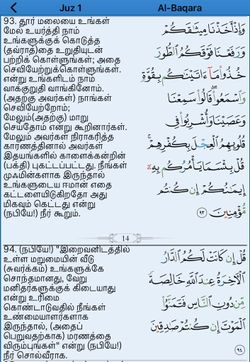 Juz 1
Al-Baqara
93. தூர் மலையை உங்கள்
மேல் உயர்த்தி நாம்
உங்களுக்குக் கொடுத்த
(தவ்ராத்)தை உறுதியுடன்
பற்றிக் கொள்ளுங்கள்; அதை
செவியேற்றுக்கொள்ளுங்கள்.
என்று உங்களிடம் நாம்
வாக்குறுதி வாங்கினோம்.
(அதற்கு அவர்கள்) நாங்கள்
செவியேற்றோம்;
மேலும்(அதற்கு) மாறு
செய்தோம் என்று கூறினார்கள்.
மேலும் அவர்கள் நிராகரித்த
காரணத்தினால் அவர்கள்
இதயங்களில் காளைக்கன்றின்
(பக்தி) புகட்டப்பட்டது. நீங்கள்
முஃமின்களாக இருந்தால்
உங்களுடைய ஈமான் எதை
கட்டளையிடுகிறதோ அது
மிகவும் கெட்டது என்று
(நபியே!) நீர் கூறும்.
وَإِذْ أَخَذْنَا مِيثَاقَكُمْ
وَرَفَعْنَا فَوْقَكُمُ الطُّورَ
خُذُوا مَا آتَيْنَاكُم بِقُوَّةٍ
وَاسْمَعُوا ۖ قَالُوا سَمِعْنَا
وَعَصَيْنَا وَأُشْرِبُوا فِي
قُلُوبِهِمُ الْعِجْلَ بِكُفْرِهِمْ ۚ
قُلْ بِئْسَمَا يَأْمُرُكُم بِهِ
إِيمَانُكُمْ إِن كُنتُم
مُّؤْمِنِينَ ٩٣
14
94. (நபியே!) "இறைவனிடத்தில்
உள்ள மறுமையின் வீடு
(சுவர்க்கம்) உங்களுக்கே
சொந்தமானது, வேறு
மனிதர்களுக்குக் கிடையாது
என்று உரிமை
கொண்டாடுவதில் நீங்கள்
உண்மையாளர்களாக
இருந்தால், (அதைப்
பெறுவதற்காக) மரணத்தை
விரும்புங்கள்" என்று (நபியே!)
நீர் சொல்வீராக.
قُلْ إِن كَانَتْ لَكُمُ الدَّارُ
الْآخِرَةُ عِندَ اللَّهِ خَالِصَةً
مِّن دُونِ النَّاسِ فَتَمَنَّوُا
الْمَوْتَ إِن كُنتُمْ صَادِقِينَ
٩٤